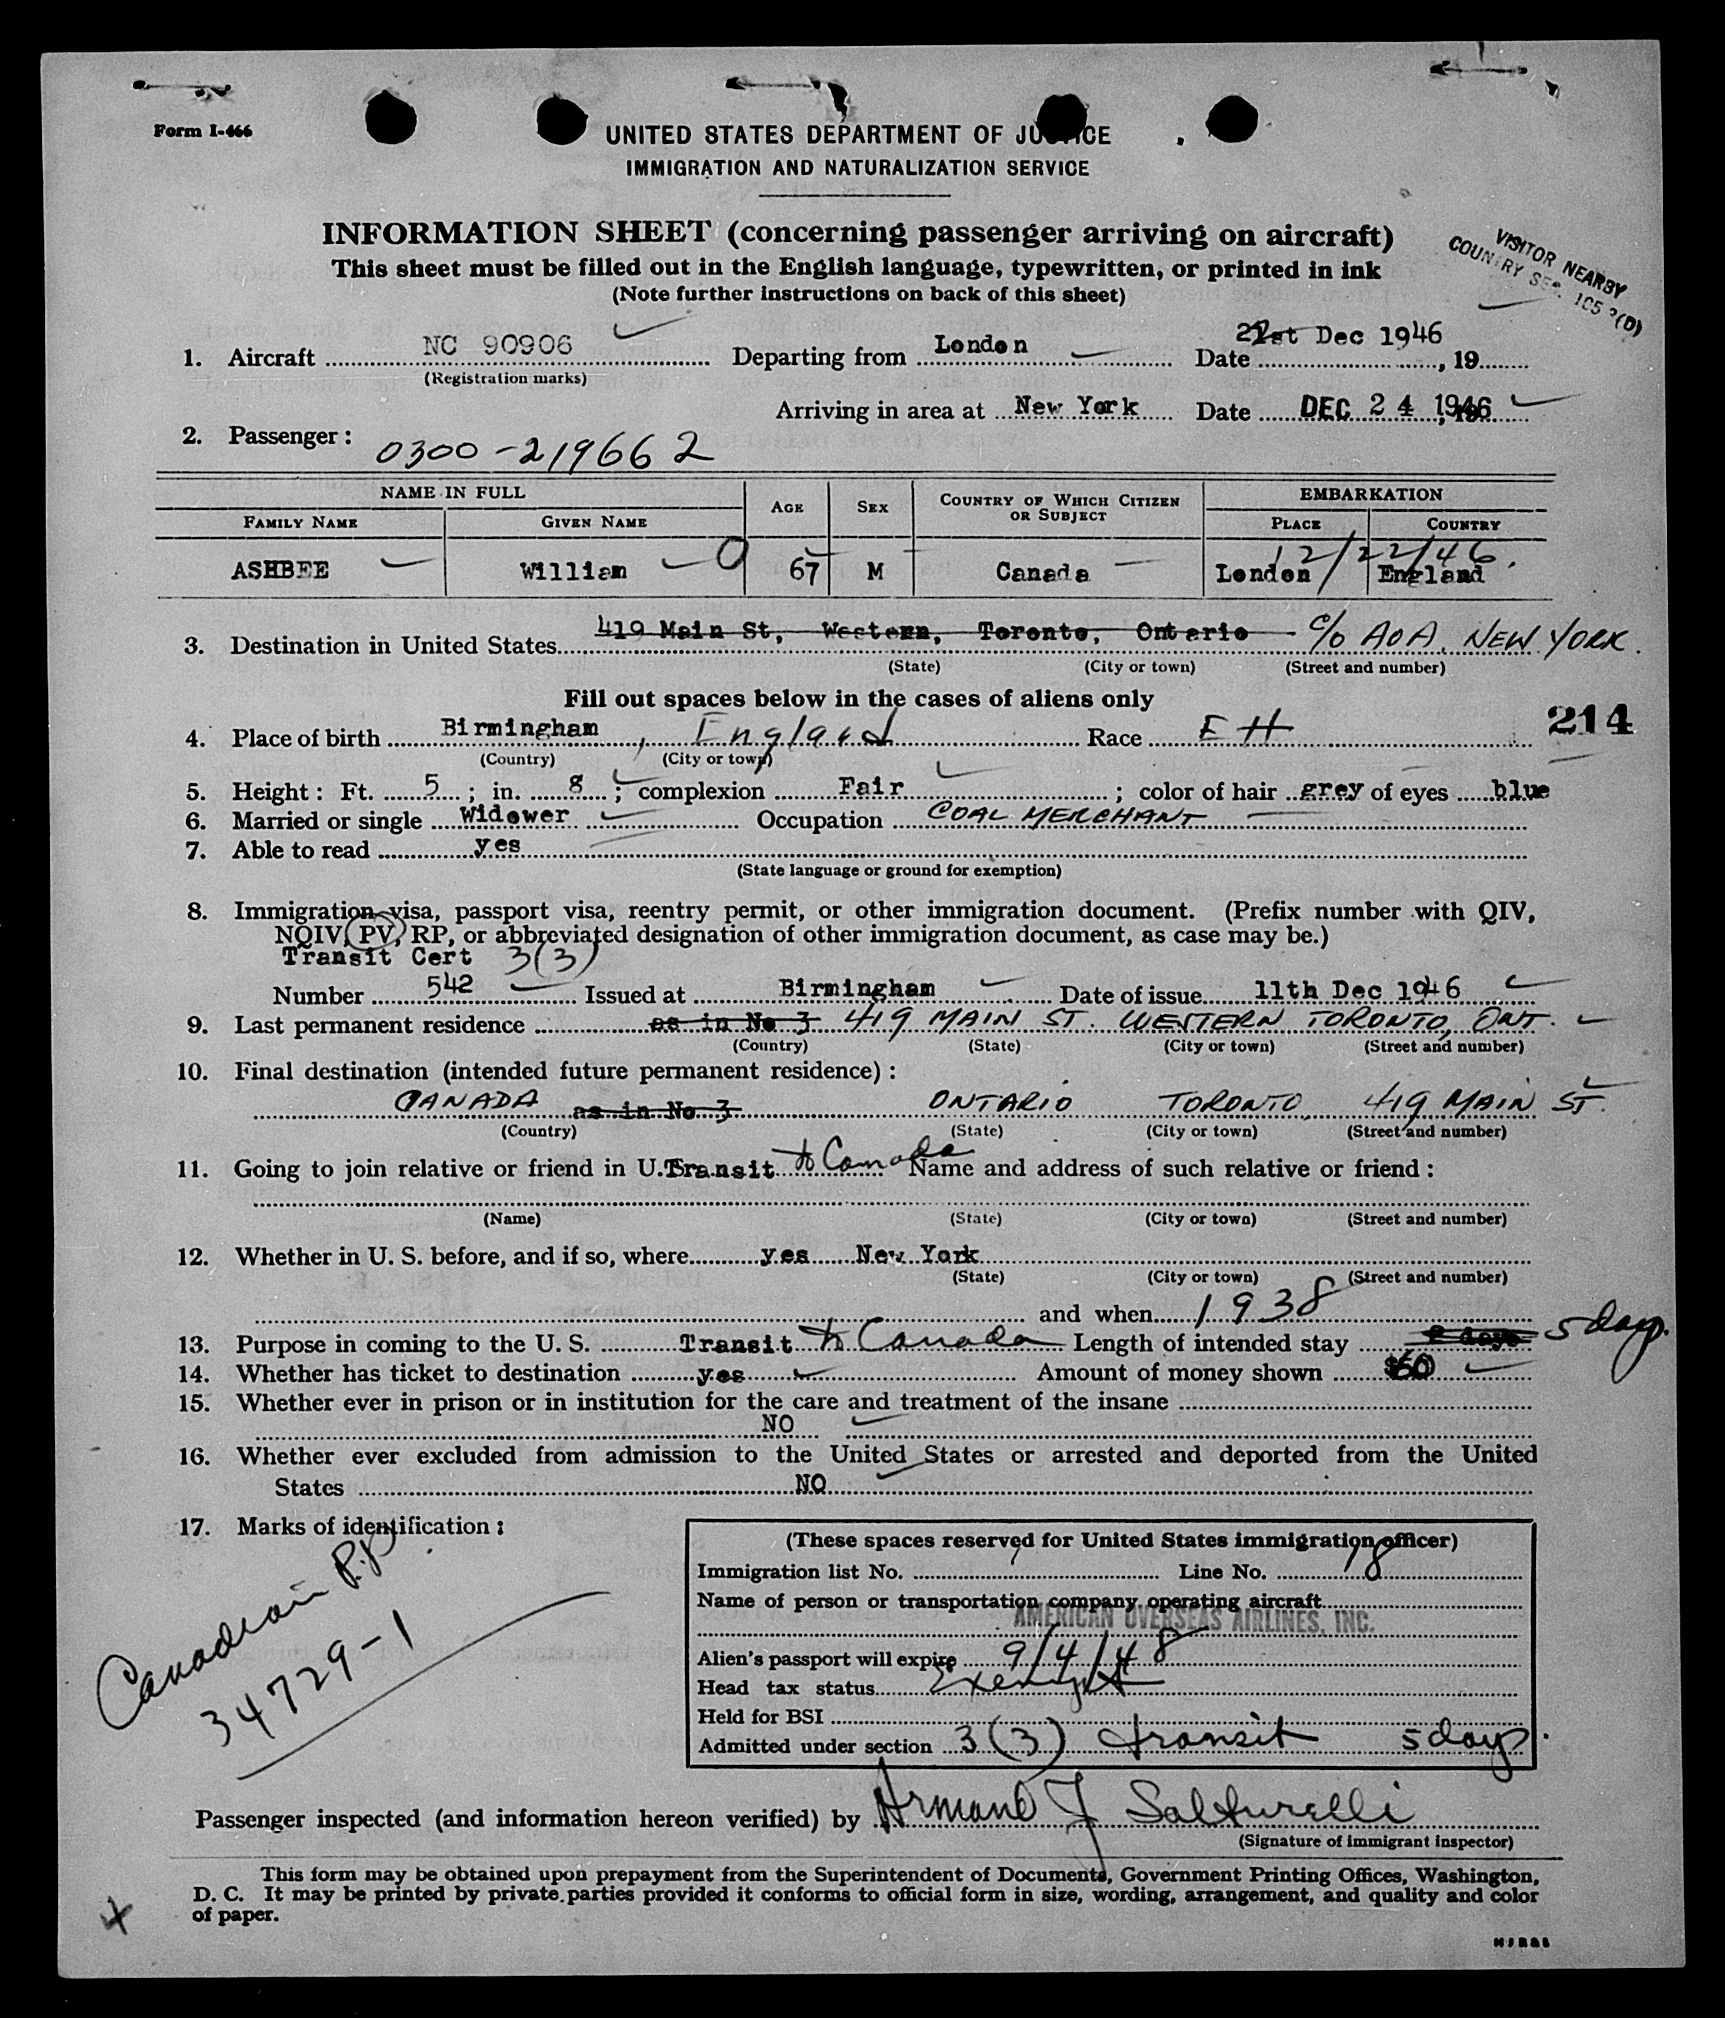 Form I-466
UNITED STATES DEPARTMENT OF JUSTICE
IMMIGRATION AND NATURALIZATION SERVICE
INFORMATION SHEET (concerning passenger arriving on aircraft)
This sheet must be filled out in the English language, typewritten, or printed in ink
(Note further instructions on back of this sheet)
VISITOR NEARBY
COUNTRY SEC. 105 (D)
1. Aircraft NC 90906 Departing from London Date Dec 1946, 19
(Registration marks)
Arriving in area at New York Date DEC 24 1946
2. Passenger: 0300-219662
NAME IN FULL AGE SEX COUNTRY OF WHICH CITIZEN OR SUBJECT EMBARKATION
FAMILY NAME GIVEN NAME PLACE COUNTRY
12/22/46
ASHBEE William 0 67 M Canada London England
3. Destination in United States 419 Main St, Western, Toronto, Ontario - c/o AOA, NEW YORK.
(State) (City or town) (Street and number)
Fill out spaces below in the cases of aliens only
214
4. Place of birth Birmingham, England Race EH
(Country) (City or town)
5. Height: Ft. 5; in. 8; complexion Fair; color of hair grey of eyes blue
6. Married or single Widower Occupation COAL MERCHANT
7. Able to read yes
(State language or ground for exemption)
8. Immigration visa, passport visa, reentry permit, or other immigration document. (Prefix number with QIV,
NQIV, PV, RP, or abbreviated designation of other immigration document, as case may be.)
Transit Cert 3(3)
Number 542 Issued at Birmingham Date of issue 11th Dec 1946
9. Last permanent residence as in No 3 419 MAIN ST. WESTERN TORONTO, ONT.
(Country) (State) (City or town) (Street and number)
10. Final destination (intended future permanent residence):
CANADA as in No 3 ONTARIO TORONTO, 419 MAIN ST.
(Country) (State) (City or town) (Street and number)
11. Going to join relative or friend in U.S. Transit to Canada Name and address of such relative or friend:
(Name) (State) (City or town) (Street and number)
12. Whether in U. S. before, and if so, where yes New York
(State) (City or town) (Street and number)
and when 1938
13. Purpose in coming to the U. S. Transit to Canada Length of intended stay 2 days 5 days.
14. Whether has ticket to destination yes Amount of money shown $60
15. Whether ever in prison or in institution for the care and treatment of the insane
NO
16. Whether ever excluded from admission to the United States or arrested and deported from the United
States NO
17. Marks of identification:
Canadian P.P.
34729-1
(These spaces reserved for United States immigration officer)
Immigration list No. Line No. 18
Name of person or transportation company operating aircraft
AMERICAN OVERSEAS AIRLINES, INC.
Alien's passport will expire 9/4/48
Head tax status Exempt
Held for BSI
Admitted under section 3(3) transit 5 days.
Passenger inspected (and information hereon verified) by Armand J Salturelli
(Signature of immigrant inspector)
This form may be obtained upon prepayment from the Superintendent of Documents, Government Printing Offices, Washington,
D. C. It may be printed by private parties provided it conforms to official form in size, wording, arrangement, and quality and color
of paper.
4